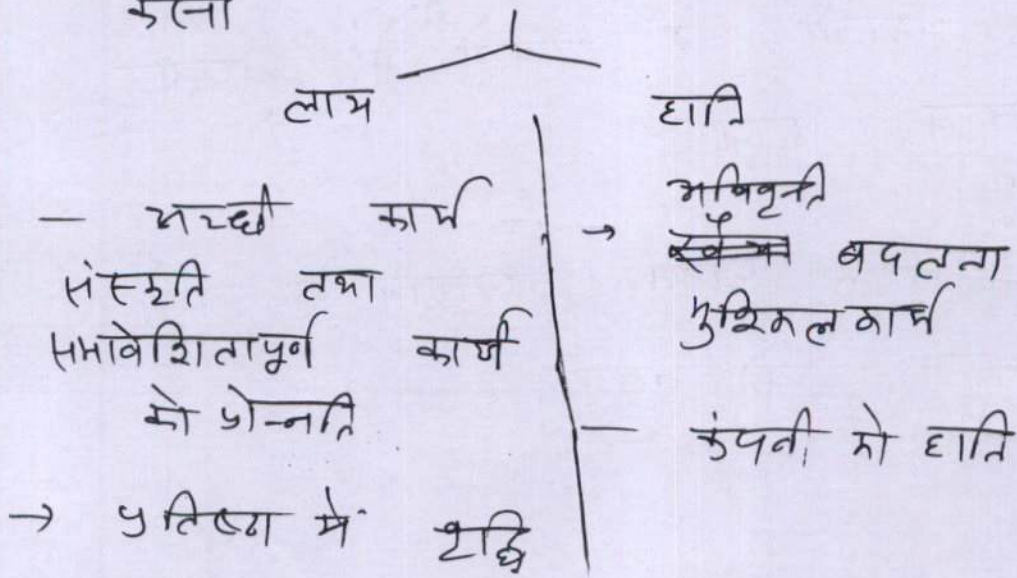 करना
लाभ
— अच्छी कार्य
संस्कृति तथा
समावेशितापूर्ण कार्य
को प्रोन्नति
→ प्रतिष्ठा में वृद्धि
हानि
→ अभिवृत्ति
बदलना
मुश्किल कार्य
— कंपनी को हानि